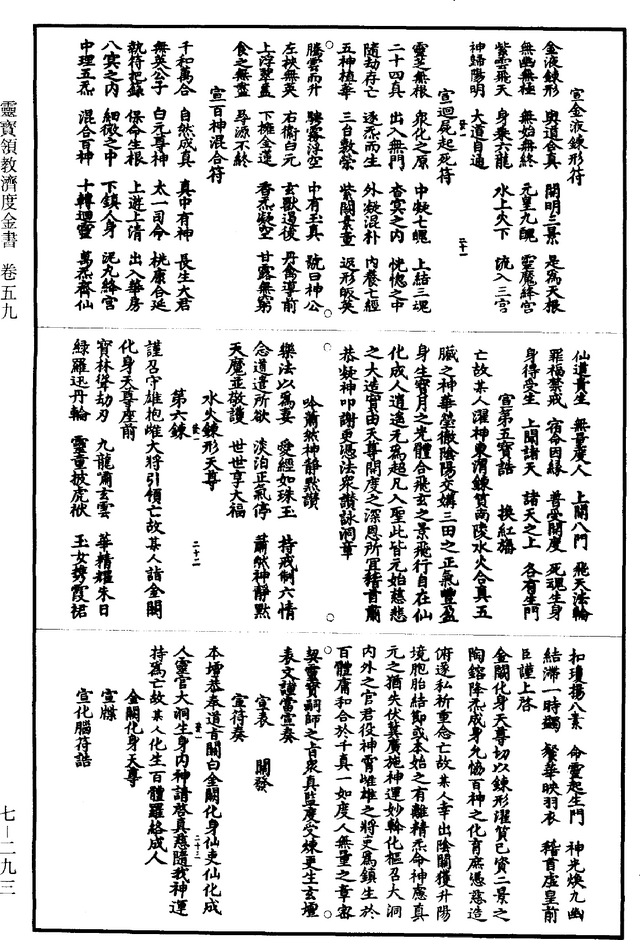 宣金液鍊形符
金液鍊形　與道合真　開明三景　是為天根
無幽無極　無始無終　元皇九　靈魔絳宮
紫雲飛天　身乘六龍　水上火下　流入三宮
神歸陽明　大道自通
宣迴屍起死符
靈芝無根　眾化之原　中凝七魄　上結三魂
二十四真　出入無門　杳冥之內　恍惚之中
隨劫存亡　逐炁而生　外凝混朴　內養七經
五神植華　三台敷榮　紫闕素童　返形皎英
騰雲而升　驂霧浮空　中有玉真　號曰神公
左抉無英　右衛白元　玄獸遏後　丹禽導前
上浮翠蓋　下擁金蓮　香炁凝空　甘露無窮
食之無盡　尋源不終
宣百神混合符
千和萬合　自然成真　真中有神　長生大君
無英公子　白元尊神　太一司命　桃康合延
執符把籙　保命生根　上遊上清　出入華房
八冥之內　細微之中　下鎮人身　泥丸絳宮
中理五炁　混合百神　十轉迴靈　萬炁齊仙
二十一
仙道貴生　無量度人　上開八門　飛天法輪
罪福禁戒　宿命因緣　普受開度　死魂生身
身得受生　上聞諸天　諸天之上　各有生門
宣第五寶誥　換紅旛
亡故某人濯神東渭鍊質南陵水火合真五
臟之神華瑩徹陰陽交媾三田之正氣豐盈
身生寶月之光體合飛玄之景飛行自在仙
化成人逍遙元為超凡入聖此皆元始慈悲
之大造實由天尊開度之深恩所宜稽首肅
恭凝神叩謝更憑法眾讚詠洞章
吟蕭然神靜默讚
樂法以為妻　愛經如珠玉　持戒制六情
念道遣所欲　淡泊正氣停　蕭然神靜默
天魔並敬護　世世享大福
水火鍊形天尊
第六鍊
二十二
謹召守雄抱雌大將引領亡故某人詣金闕
化身天尊座前
寶林聳劫刃　九龍嘯玄雲　華精耀朱日
綠羅迅丹輪　靈童披虎袱　玉女携霞裙
扣瓊揚八素　命靈起生門　神光煥九幽
結滯一時蠲　聚華映羽衣　稽首虛皇前
臣謹上啓
金闕化身天尊切以鍊形濯質已資二景之
陶鎔降炁成身允協百神之化育庶憑慈造
俯遂私祈重念亡故某人幸出陰關獲升陽
境胞胎結節或本始之有離精炁命神慮真
元之猶失伏冀廣施神運妙斡化樞召大洞
內外之官君役神霄雌雄之將吏為鎮生於
百體庸和合於千真一如度人無量之章密
契靈寶嗣師之旨眾真監度受煉更生玄壇
表文謹當宣奏
宣表　關發
宣符奏
二十三
本壇恭奉道旨關白金闕化身仙吏仙化成
人靈官大洞生身內神請啓真慈隨我神運
持為亡故某人化生百體羅絡成人
金闕化身天尊
宣牒
宣化腦符誥
靈寶領教濟度金書　卷五九
七—二九三